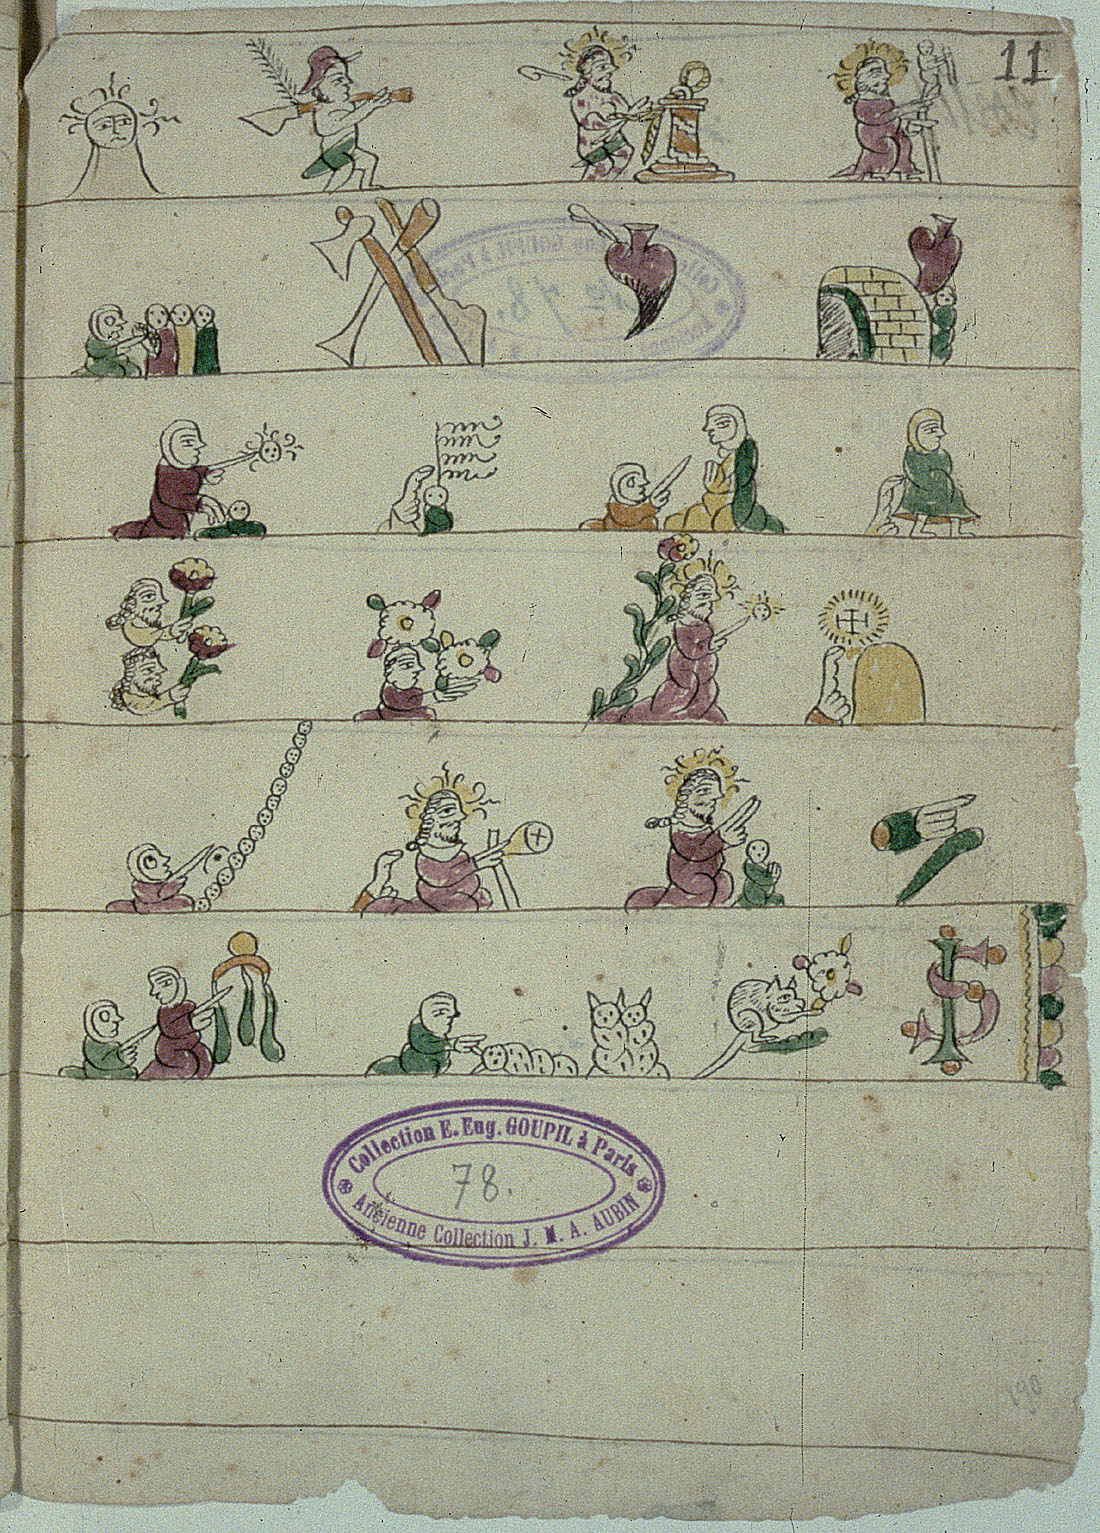 11
Collection E. Eug. GOUPIL à Paris
78.
Ancienne Collection J. M. A. AUBIN
190